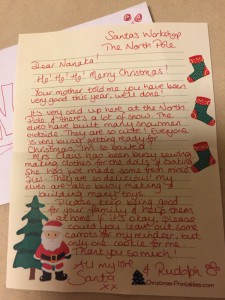 Santa's Workshop
The North Pole
Dear Nanaka!
Ho! Ho! Ho! Merry Christmas!
Your mother told me you have been
very good this year, well done!
It's very cold up here at the North
Pole & there's a lot of snow. The
elves have built many snowmen
outside. They are so cute! Everyone
is very busy getting ready for
Christmas. I'm so excited.
Mrs Claus has been busy sewing
making clothes for the dolls & baking.
She has just made some fresh mince
pies. They are so delicious! My
elves are also busy making &
building many toys.
Please, keep being good
for your family & help them
at home. If it's okay, please
could you leave out some
carrots for my reindeer, but
only one cookie for me.
Thank you so much!
All my love
Santa & Rudolph
xx
Christmas-Printables.com